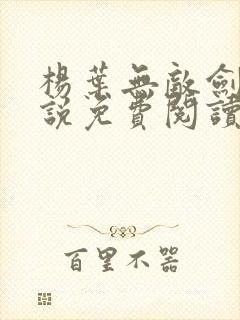 楊葉無敵劍
說免費閱讀
百里不器